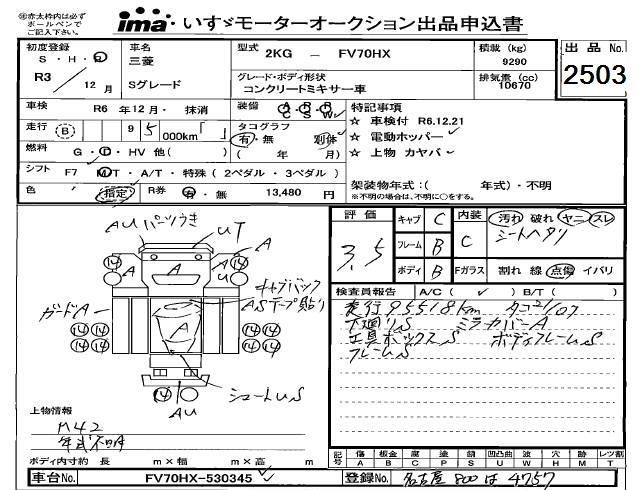 ㊟赤太枠内は必ず
ボールペンで
ご記入下さい。
ima いすゞモーターオークション出品申込書
初度登録
S・H・R
R3 / 12 月
車名
三菱
Sグレード
型式 2KG － FV70HX
グレード・ボディ形状
コンクリートミキサー車
積載 (kg)
9290
排気量 (cc)
10670
出品 No.
2503
車検 R6 年 12 月・ 抹消
装備 A/C P/S R/W
特記事項
☆ 車検付 R6.12.21
☆ 電動ホッパー
☆ 上物 カヤバ
走行 (B) 9 5 000km「 」
タコグラフ
有・無 別体
( 年 月)
燃料 G・D・HV 他( )
シフト F7 M/T・A/T・特殊 ( 2ペダル・3ペダル )
色 (指定) R券 有・無 13,480 円
架装物年式:( 年式)・不明
※不明の場合は、不明に○をする。
評価 3.5
キャブ C
フレーム B
ボディ B
内装 C
汚れ 破れ ヤニ スレ
シートヘタリ
Fガラス 割れ 線 点傷 イバリ
検査員報告 A/C ( ✓ ) B/T ( )
走行 95518km タコ21/07
下廻りS ミラーカバーA
工具ボックスS ボディフレームS
フレームS
AUパーツうき
UT
A
A
A
A
キャブバック
ASテープ貼り
ガードA
14 14
14 14 14 14
14 14 14 14
14
シュートUS
AU
上物情報
M42
年式不明
ボディ内寸約 長 m×幅 m×高 m
記号 傷 板金 腐 塗 錆 凹凸曲 波 穴 跡 レツ割
A B C P S U W H M T
車台No. FV70HX-530345
登録No. 名古屋 800 は 4757